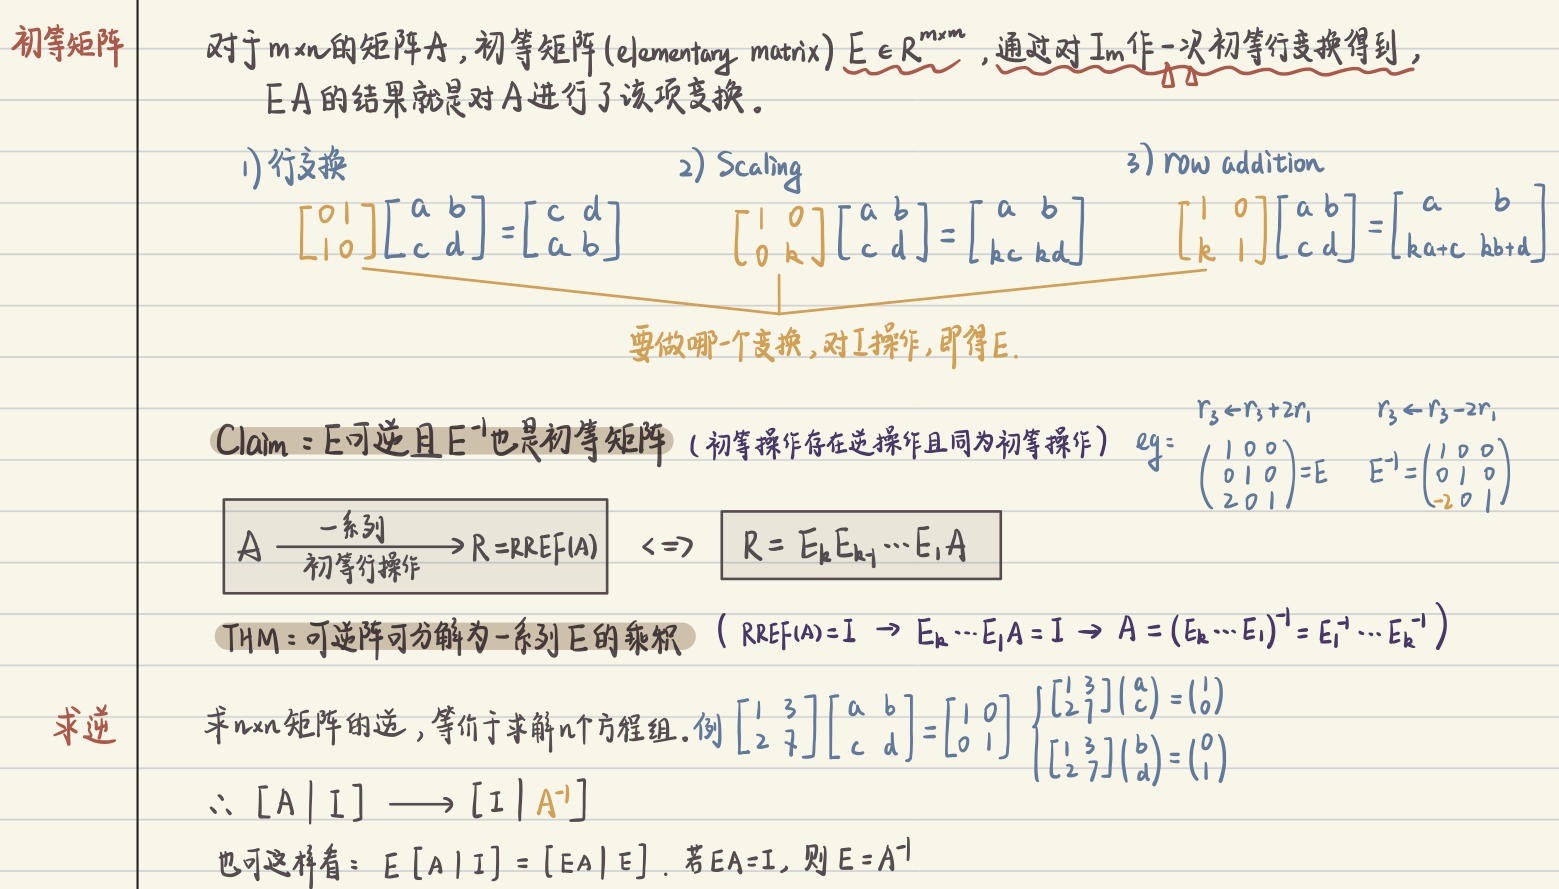 初等矩阵
对于m×n的矩阵A,初等矩阵(elementary matrix) E ∈ R^{m×m},通过对I_m作一次初等行变换得到,
EA的结果就是对A进行了该项变换.
1) 行交换 2) Scaling 3) row addition
[0 1; 1 0] [a b; c d] = [c d; a b] [1 0; 0 k] [a b; c d] = [a b; kc kd] [1 0; k 1] [a b; c d] = [a b; ka+c kb+d]
要做哪一个变换,对I操作,即得E.
Claim: E可逆且E^{-1}也是初等矩阵 (初等操作存在逆操作且同为初等操作) eg: r_3←r_3+2r_1 (1 0 0; 0 1 0; 2 0 1)=E r_3←r_3-2r_1 E^{-1}=(1 0 0; 0 1 0; -2 0 1)
A 一系列 初等行操作 → R=RREF(A) <=> R = E_k E_{k-1} … E_1 A
THM: 可逆阵可分解为一系列E的乘积 ( RREF(A)=I → E_k…E_1A=I → A=(E_k…E_1)^{-1}=E_1^{-1}…E_k^{-1} )
求逆
求n×n矩阵的逆,等价于求解n个方程组. 例 [1 3; 2 7] [a b; c d] = [1 0; 0 1] { [1 3; 2 7] (a; c) = (1; 0)
[1 3; 2 7] (b; d) = (0; 1)
∴ [A | I] → [I | A^{-1}]
也可这样看: E [A | I] = [EA | E]. 若EA=I, 则E=A^{-1}